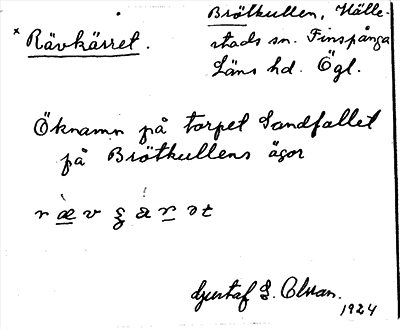 × Rävkärret.
Brötkullen, Hälle-
stads sn. Finspånga
Läns hd. Ögl.
Öknamn på torpet Sandfallet
på Brötkullens ägor
Gustaf
1924